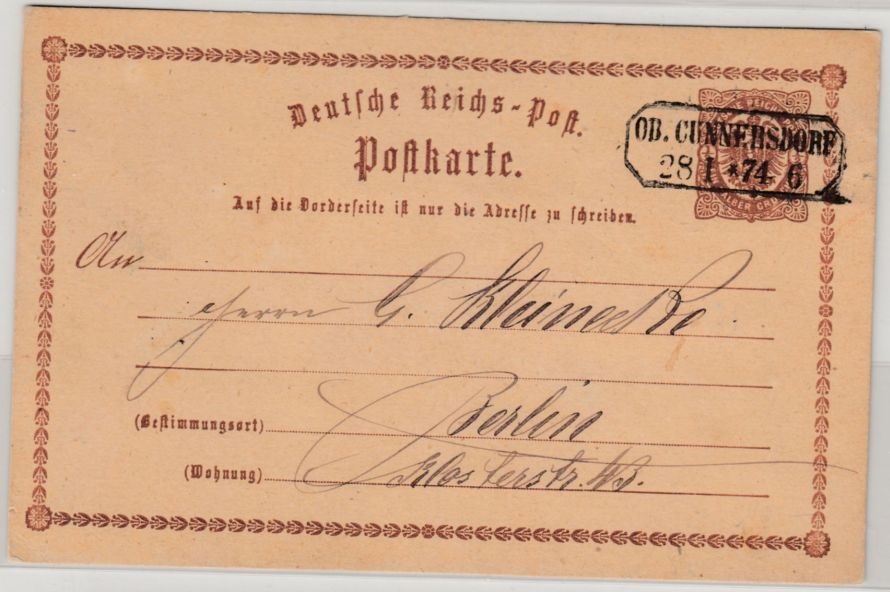 Deutsche Reichs-Post.
Postkarte.
OB. CUNNERSDORF
28 I *74 6
Auf die Vorderseite ist nur die Adresse zu schreiben.
An
Herrn G. Kleinecke
(Bestimmungsort) Berlin
(Wohnung) Klosterstr. 43.